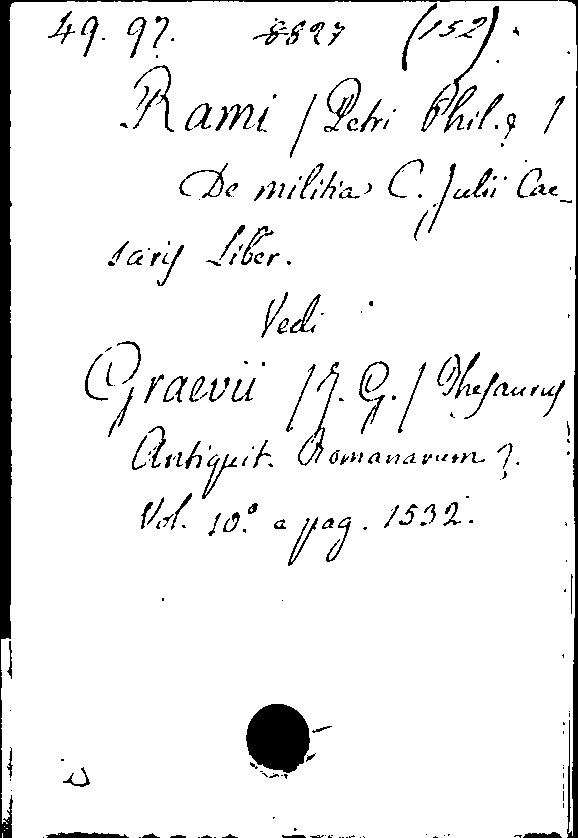 49. 97. 8827 (152).
Rami / Petri Phil. /
De militia C. Julii Cae-
saris Liber.
Vedi
Graevii / J. G. / Thesaurus
Antiquit. Romanarum
Vol. 10.° a pag. 1532.